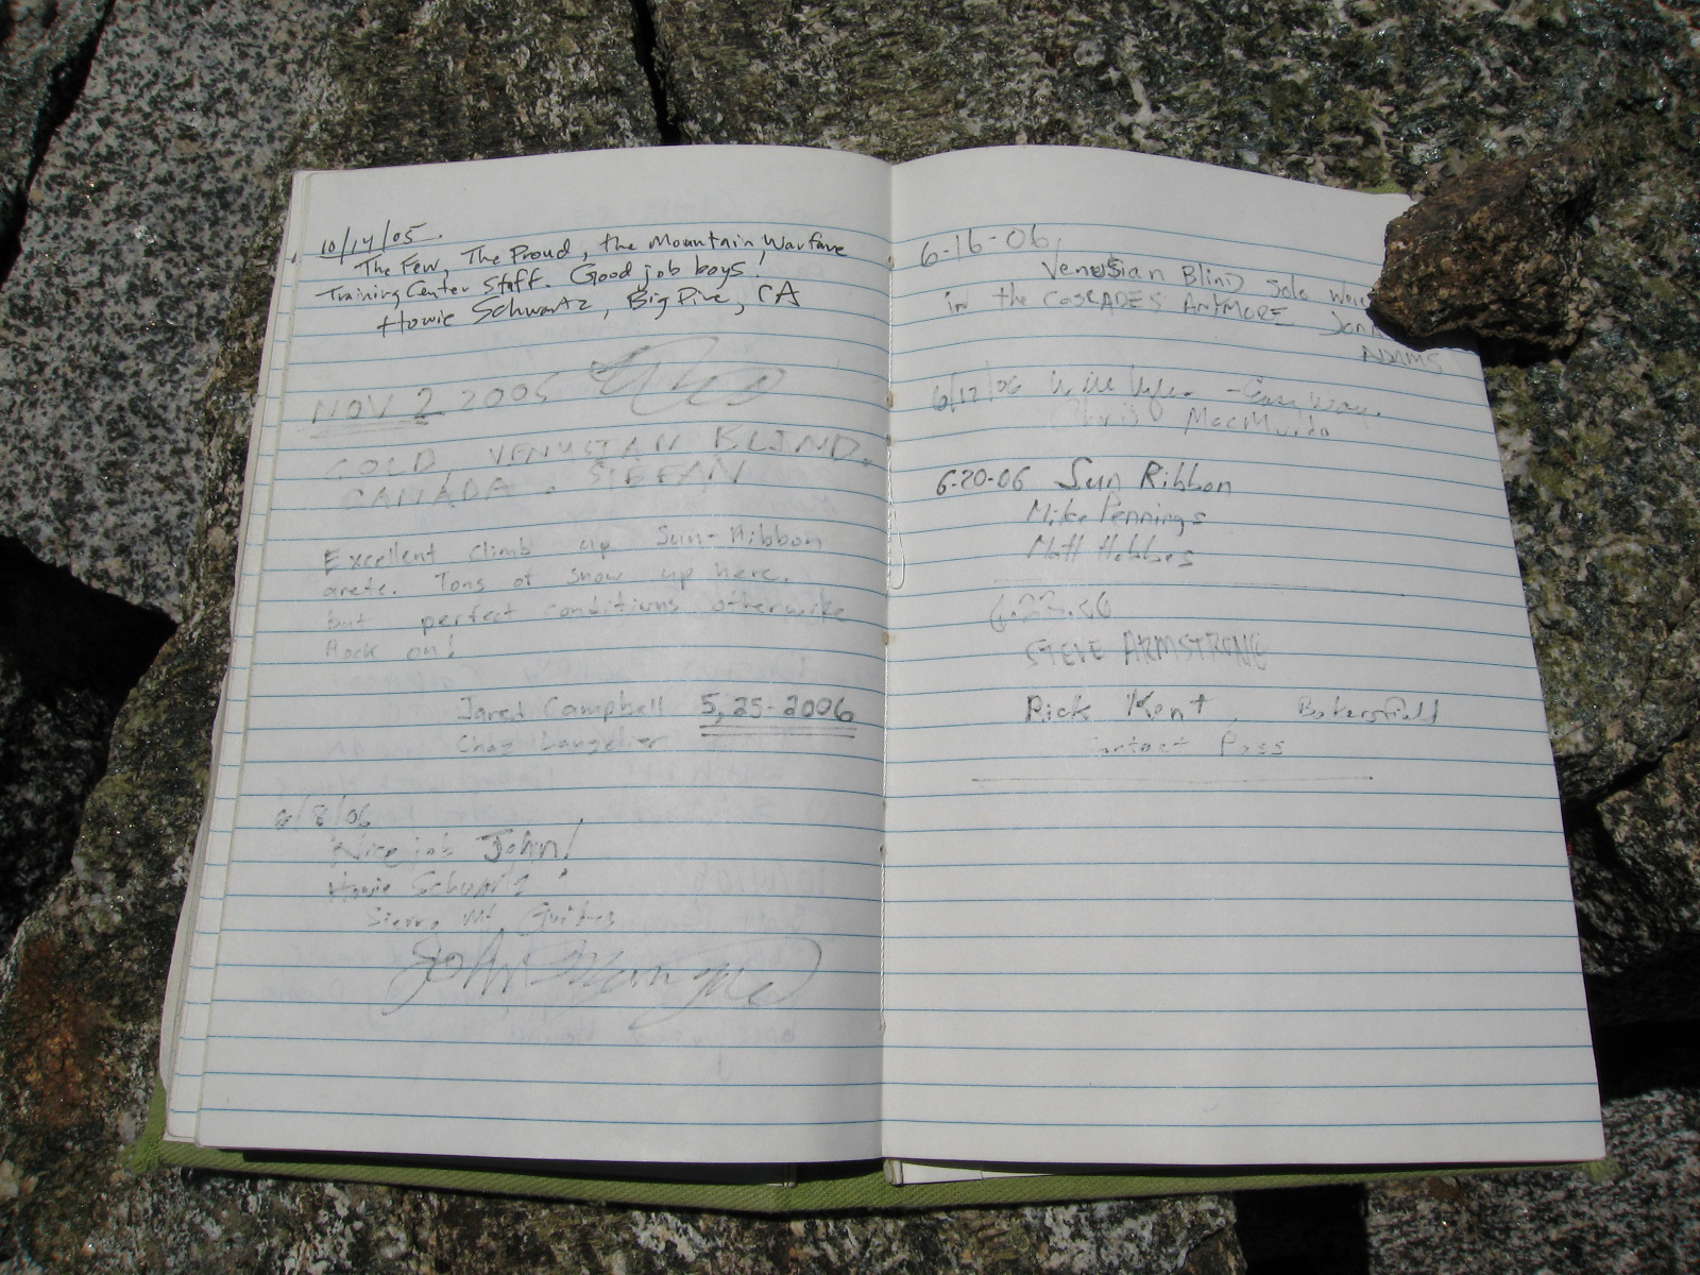 10/14/05.
The Few, The Proud, the Mountain Warfare
Training Center Staff. Good job boys!
Howie Schwartz, Big Pine, CA
NOV 2 2005
COLD, VENUSIAN BLIND.
CANADA. STEFAN
Excellent climb up Sun-Ribbon
arete. Tons of snow up here.
but perfect conditions otherwise
Rock on!
Jared Campbell 5,25-2006
Chaz
6/8/06
Nice job John!
Howie Schwartz
Sierra Mt Guides
John
6-16-06
Venusian Blind solo
in the CASCADES ANYMORE
ADAMS
6/17/06
Chris
6-20-06 Sun Ribbon
Mike Pennings
Matt Hobbs
STEVE ARMSTRONG
Rick Kent, Bakersfield
Contact Pass